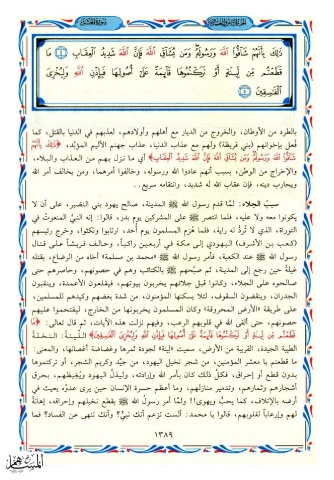 ذَٰلِكَ بِأَنَّهُمْ شَاقُّوا اللَّهَ وَرَسُولَهُ وَمَن يُشَاقِّ اللَّهَ فَإِنَّ اللَّهَ شَدِيدُ الْعِقَابِ ٤ مَا
قَطَعْتُم مِّن لِّينَةٍ أَوْ تَرَكْتُمُوهَا قَائِمَةً عَلَىٰ أُصُولِهَا فَبِإِذْنِ اللَّهِ وَلِيُخْزِيَ
الْفَاسِقِينَ ٥
بالطرد من الأوطان، والخروج من الديار مع أهلهم وأولادهم، لعذبهم في الدنيا بالقتل، كما
فُعل بإخوانهم (بني قريظة) ولهم مع عذاب الدنيا، عذاب جهنم الأليم المؤبَّد، ﴿ذلك بأنهم
شاقوا الله ورسوله ومن يشاق الله فإن الله شديد العقاب﴾ أي ما نزل بهم من العذاب والبلاء،
والإخراج من الوطن، بسبب أنهم عادوا الله ورسوله، وخالفوا أمرهما، ومن يخالف أمر الله
ويحارب دينه، فإن عقاب الله له شديد، وانتقامه سريع..
سبب الجلاء: لما قدم رسول الله ﷺ المدينة، صالح يهود بني النضير، على أن لا
يكونوا معه ولا عليه، فلما انتصر ﷺ على المشركين يوم بدر، قالوا: إنه النبي المنعوت في
التوراة، الذي لا تُردُّ له راية، فلما هُزم المسلمون يوم أحد، ارتابوا ونكثوا، وخرج رئيسهم
(كعب بن الأشرف) اليهودي إلى مكة في أربعين راكباً، وحالف قريشاً على قتال
رسول الله ﷺ عند الكعبة، فأمر رسول الله ﷺ «محمد بن مسلمة» أخاه من الرضاع، بقتله
غيلة حين رجع إلى المدينة، ثم صبَّحهم ﷺ بالكتائب وهم في حصونهم، وحاصرهم حتى
صالحوه على الجلاء، وكانوا قبل جلائهم يخربون بيوتهم، فيقلعون الأعمدة، وينقبون
الجدران، وينقضون السقوف، لئلا يسكنها المؤمنون، من شدة بغضهم وكيدهم للمسلمين،
على طريقة «الأرض المحروقة» وكان المسلمون يخربونها من الخارج، ليقتحموا عليهم
حصونهم، حتى ألقى الله في قلوبهم الرعب، وفيهم نزلت هذه الآيات، ثم قال تعالى: ﴿ما
قطعتم من لينة أو تركتموها قائمة على أصولها فبإذن الله وليخزي الفاسقين﴾ اللينة: النخلة
الطيبة الجيدة، القريبة من الأرض، سميت «لينة» لجودة ثمرها وغضاضة أغصانها، والمعنى:
ما قطعتم يا معشر المؤمنين، من شجر نخيل اليهود، من جيِّد وكريم الشجر، أو تركتموها
بدون قطع أو إحراق، فكلُّ ذلك كان بأمر الله وإرادته، وليذلَّ اليهود ويُغيظهم، بحرق
أشجارهم وثمارهم، وتدمير منازلهم، وما أعظم حسرة الإنسان حين يرى عدوَّه يعبث في
أرضه بالإتلاف، كما يحبُّ ويهوى!! ولمَّا أمر رسول الله ﷺ بقطع نخيلهم وإحراقه، إهانةً
لهم وإرعاباً لقلوبهم، قالوا يا محمد: ألست تزعم أنك نبيٌّ؟ وأنك تنهى عن الفساد؟ فما
١٣٨٩